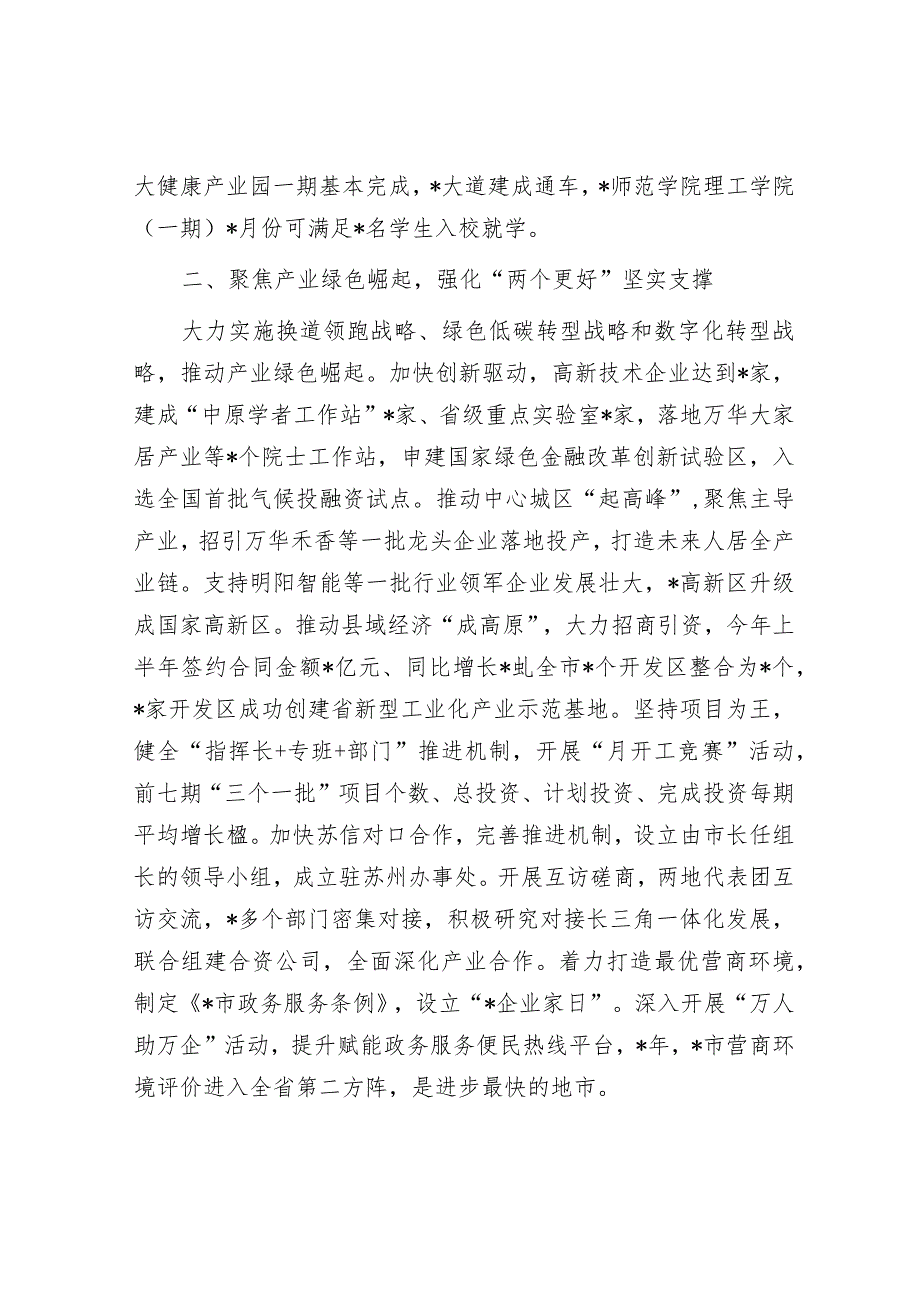 大健康产业园一期基本完成，*大道建成通车，*师范学院理工学院
（一期）*月份可满足*名学生入校就学。
二、聚焦产业绿色崛起，强化“两个更好”坚实支撑
大力实施换道领跑战略、绿色低碳转型战略和数字化转型战
略，推动产业绿色崛起。加快创新驱动，高新技术企业达到*家，
建成“中原学者工作站”*家、省级重点实验室*家，落地万华大家
居产业等*个院士工作站，申建国家绿色金融改革创新试验区，入
选全国首批气候投融资试点。推动中心城区“起高峰”,聚焦主导
产业，招引万华禾香等一批龙头企业落地投产，打造未来人居全产
业链。支持明阳智能等一批行业领军企业发展壮大，*高新区升级
成国家高新区。推动县域经济“成高原”，大力招商引资，今年上
半年签约合同金额*亿元、同比增长*虬全市*个开发区整合为*个，
*家开发区成功创建省新型工业化产业示范基地。坚持项目为王，
健全“指挥长+专班+部门”推进机制，开展“月开工竞赛”活动，
前七期“三个一批”项目个数、总投资、计划投资、完成投资每期
平均增长楹。加快苏信对口合作，完善推进机制，设立由市长任组
长的领导小组，成立驻苏州办事处。开展互访磋商，两地代表团互
访交流，*多个部门密集对接，积极研究对接长三角一体化发展，
联合组建合资公司，全面深化产业合作。着力打造最优营商环境，
制定《*市政务服务条例》，设立“*企业家日”。深入开展“万人
助万企”活动，提升赋能政务服务便民热线平台，*年，*市营商环
境评价进入全省第二方阵，是进步最快的地市。